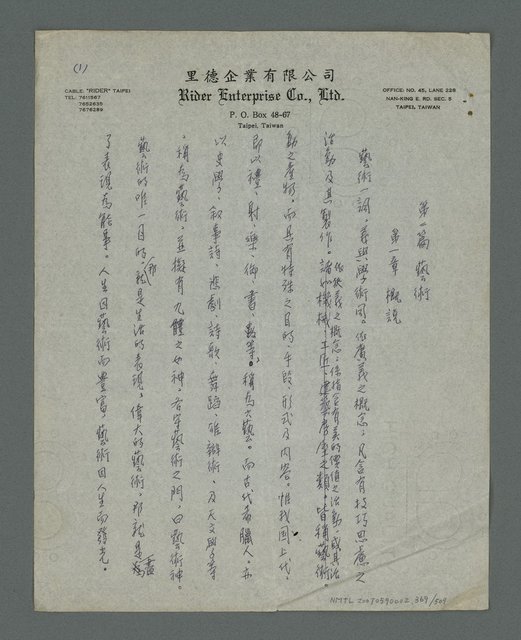 (1)
里德企業有限公司
Rider Enterprise Co., Ltd.
P. O. Box 48-67
Taipei, Taiwan
CABLE: "RIDER" TAIPEI
TEL: 7611567
7652635
7676289
OFFICE: NO. 45, LANE 228
NAN-KING E. RD. SEC. 5
TAIPEI, TAIWAN
第一篇 藝術
第一章 概說
藝術一詞，義與學術同。依廣義之概念，凡含有技巧思慮之
活動及其製作。諸如機械、工匠、建築、摩崖之類。皆稱藝術。
依狹義之概念，係指含有美的價值之活動，或其活
動之產物。而具有特殊之目的、手段、形式及內容。惟我國上代，
即以禮、射、樂、御、書、數等。稱為六藝。而古代希臘人。亦
以史學、敘事詩、悲劇、詩歌、舞蹈、雄辯術、及天文學等
，稱為藝術。並擬有九體之女神，各守藝術之門，曰藝術神。
藝術的唯一目的，那就是生活的表現。偉大的藝術，那就是盡
了表現為能事。人生因藝術而豐富，藝術因人生而發光。
NMTL 20070590002, 369/509